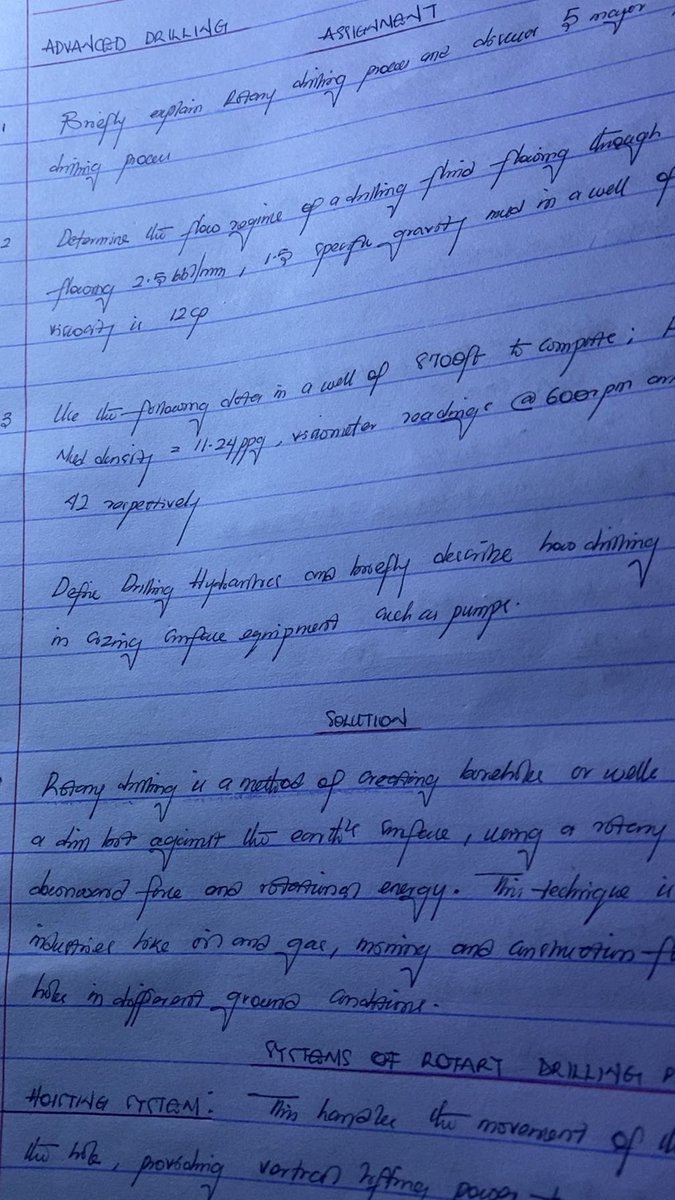 ADVANCED DRILLING ASSIGNMENT
1 Briefly explain Rotary drilling process and discuss 5 major
drilling process
2 Determine the flow regime of a drilling fluid flowing through
flowing 2.5 bbl/min, 1.5 specific gravity mud in a well of
viscosity is 12cp
3 Use the following data in a well of 8700ft to compute;
Mud density = 11.24ppg, viscometer readings @ 600rpm and
42 respectively
Define Drilling Hydraulics and briefly describe how drilling
in sizing surface equipment such as pumps.
SOLUTION
Rotary drilling is a method of creating boreholes or wells
a drill bit against the earth's surface, using a rotary
downward force and rotational energy. This technique is
industries like oil and gas, mining and construction
holes in different ground conditions.
SYSTEMS OF ROTARY DRILLING
HOISTING SYSTEM: This handles the movement of
the hole, providing vertical lifting power